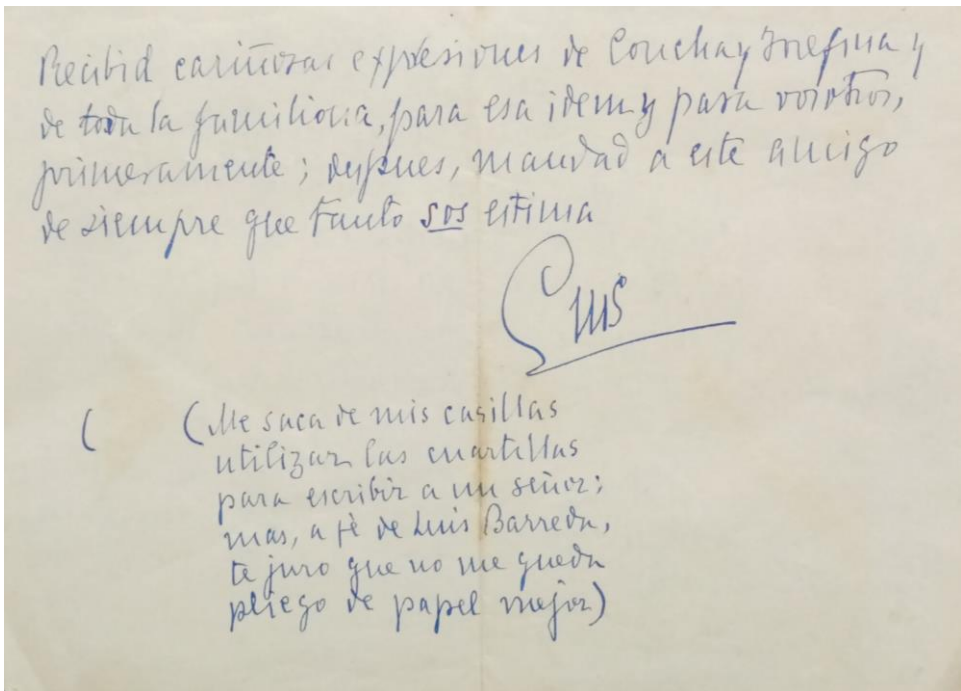 Recibid cariñosas expresiones de Concha y Josefina y
de toda la familiona, para esa idem y para vosotros,
primeramente; despues, mandad a este amigo
de siempre que tanto sos estima
Luis
( (Me saca de mis casillas
utilizar las cuartillas
para escribir a un señor;
mas, a fè de Luis Barreda,
te juro que no me queda
pliego de papel mejor)